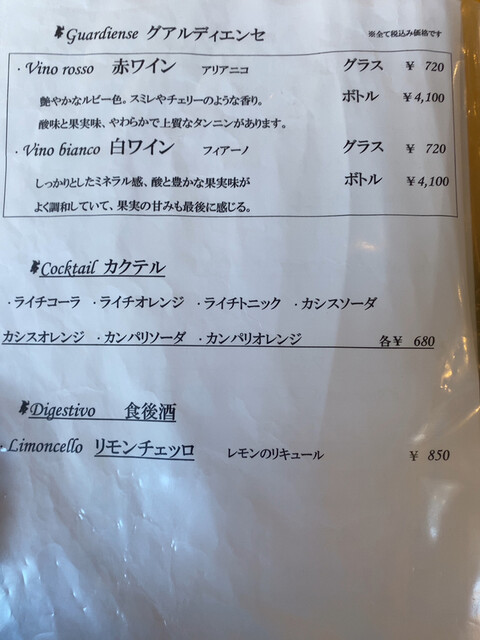 Guardiense グアルディエンセ ※全て税込み価格です
・Vino rosso 赤ワイン アリアニコ グラス ¥ 720
艶やかなルビー色。スミレやチェリーのような香り。 ボトル ¥4,100
酸味と果実味、やわらかで上質なタンニンがあります。
・Vino bianco 白ワイン フィアーノ グラス ¥ 720
しっかりとしたミネラル感、酸と豊かな果実味が ボトル ¥4,100
よく調和していて、果実の甘みも最後に感じる。
Cocktail カクテル
・ライチコーラ ・ライチオレンジ ・ライチトニック ・カシスソーダ
カシスオレンジ ・カンパリソーダ ・カンパリオレンジ 各¥ 680
Digestivo 食後酒
・Limoncello リモンチェッロ レモンのリキュール ¥ 850